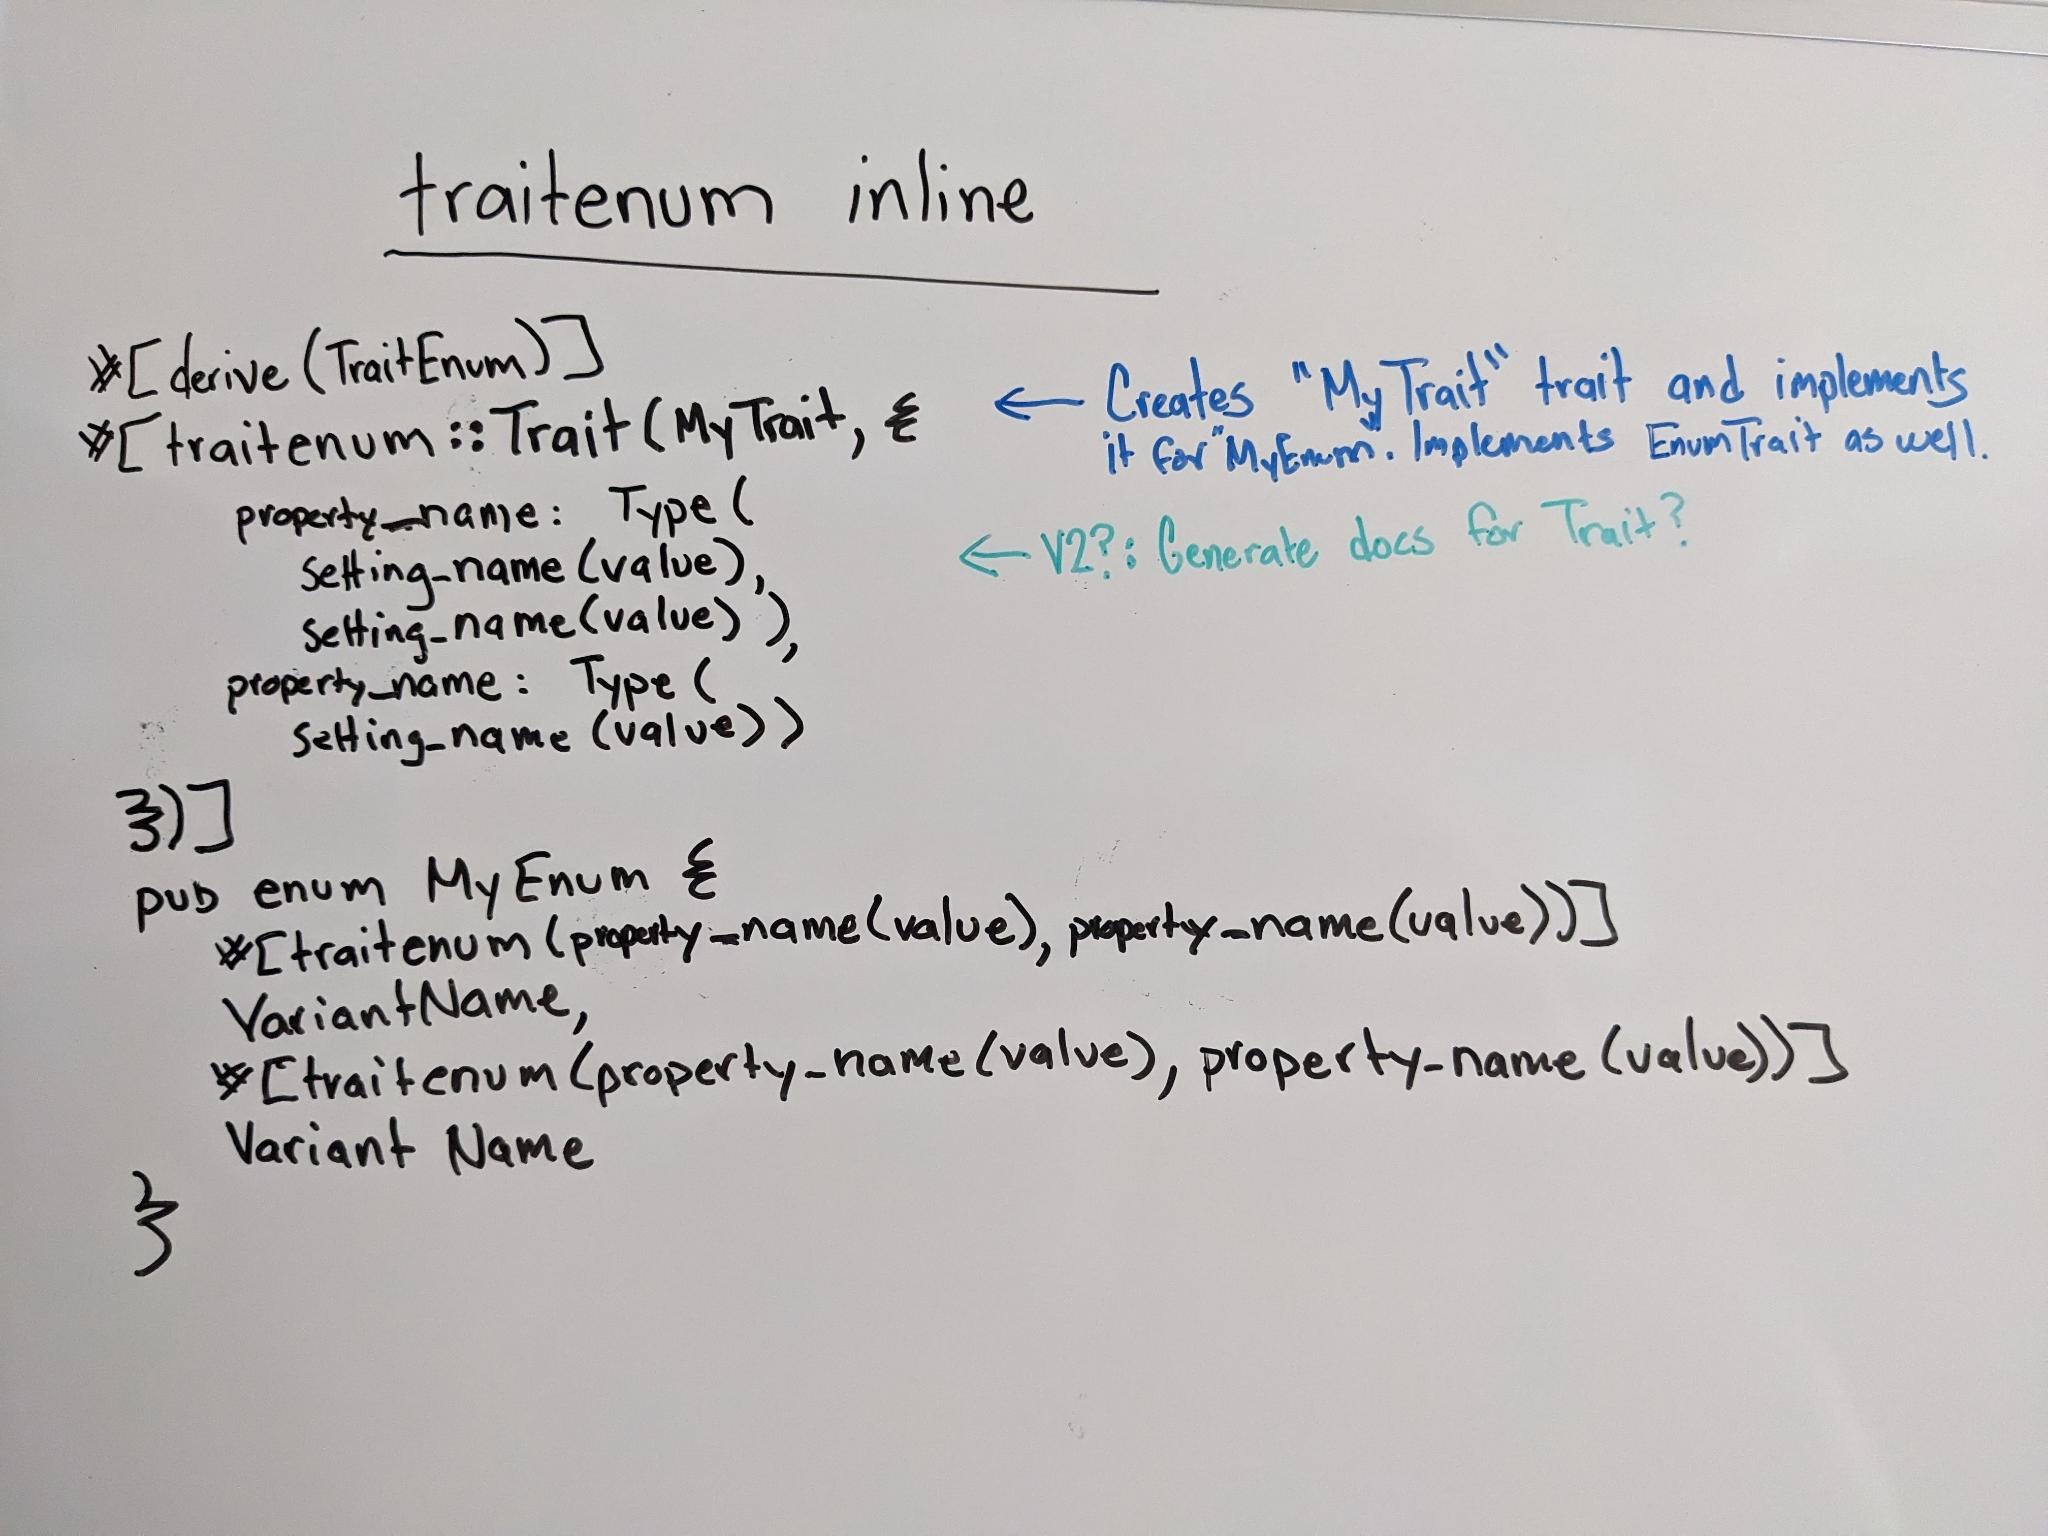 traitenum inline
#[derive(TraitEnum)]
#[traitenum::Trait(MyTrait, {
property_name: Type(
setting_name(value),
setting_name(value)),
property_name: Type(
setting_name(value))
})]
pub enum MyEnum {
#[traitenum(property_name(value), property_name(value))]
VariantName,
#[traitenum(property_name(value), property_name(value))]
Variant Name
}
← Creates "MyTrait" trait and implements
it for "MyEnum". Implements EnumTrait as well.
← V2?: Generate docs for Trait?